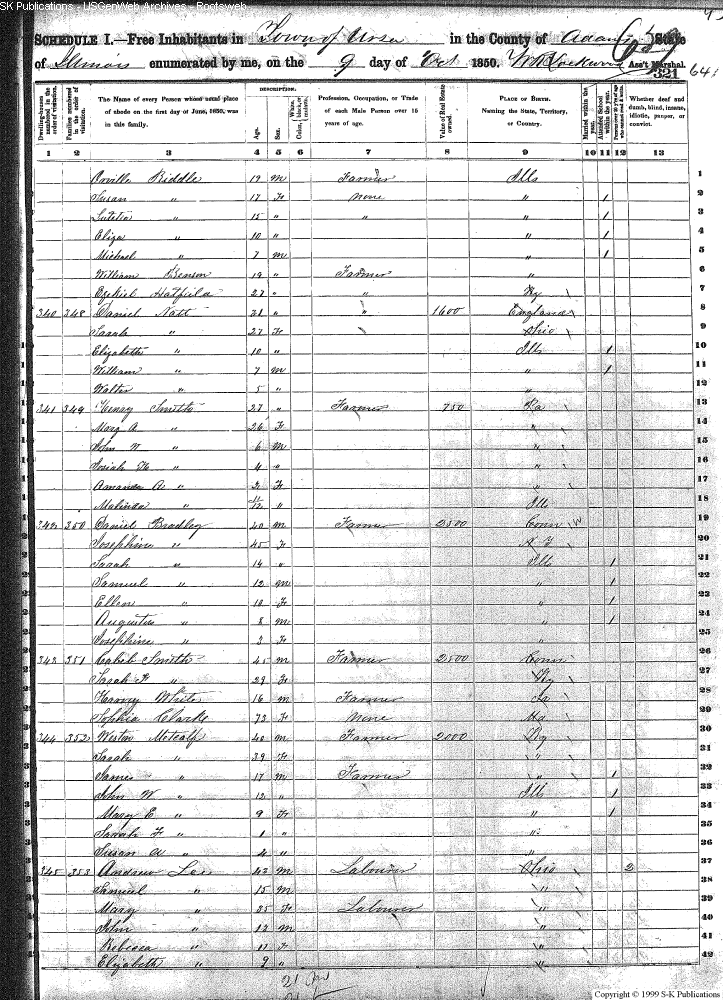 SK Publications - USGenWeb Archives - Rootsweb
SCHEDULE I.—Free Inhabitants in Town of Ursa in the County of Adams State
of Illinois enumerated by me, on the 9 day of Oct 1850. Wm Lockwood Ass't Marshal.
321 641
Dwelling-houses numbered in the order of visitation. Families numbered in the order of visitation. The Name of every Person whose usual place of abode on the first day of June, 1850, was in this family. DESCRIPTION. Age. Sex. Color, White, black, or mulatto. Profession, Occupation, or Trade of each Male Person over 15 years of age. Value of Real Estate owned. PLACE OF BIRTH. Naming the State, Territory, or Country. Married within the year. Attended School within the year. Persons over 20 y'rs of age who cannot read & write. Whether deaf and dumb, blind, insane, idiotic, pauper, or convict.
1 2 3 4 5 6 7 8 9 10 11 12 13
Orville Riddle 19 m Farmer Ills 1
Susan " 17 F none " / 2
Lutetia " 15 " " " / 3
Eliza " 10 " " / 4
Michael " 7 m " / 5
William Benson 19 " Farmer " 6
Ezekiel Hatfield 27 " " Ky 7
340 348 Daniel Natt 31 " " 1600 England 8
Sarah " 27 F Ohio 9
Elizabeth " 10 " Ills / 10
William " 7 m " / 11
Walter " 5 " " 12
341 349 Henry Smith 27 " Farmer 750 Pa 13
Mary A " 26 F " 14
John W " 6 m " 15
Josiah H " 4 " " 16
Amanda A " 2 F " 17
Malinda " 11/12 " Ills 18
342 350 Daniel Bradley 40 m Farmer 2500 Conn 19
Josephine " 45 F N Y 20
Sarah " 14 " Ills / 21
Samuel " 12 m " / 22
Ellen " 10 F " / 23
Augustus " 8 m " / 24
Josephine " 3 F 25
343 351 Caleb Smith 45 m Farmer 2500 Conn 26
Sarah F " 29 F Ky 27
Harvey White 16 m Farmer 28
Sophia Clarke 73 F none 29
344 352 Weston Metcalf 40 m Farmer 2000 Ky 30
Sarah " 39 F " 31
James " 17 m Farmer " / 32
John W " 12 " Ills / 33
Mary E " 9 F " / 34
Sarah F " 1 " " 35
Susan A " 4 " " 36
345 353 Andrew Lee 43 m Labourer Ohio 2 37
Samuel " 15 m " 38
Mary " 35 F Labourer " 39
John " 12 m " 40
Rebecca " 11 F " 41
Elizabeth " 9 " " 42
Copyright © 1999 S-K Publications